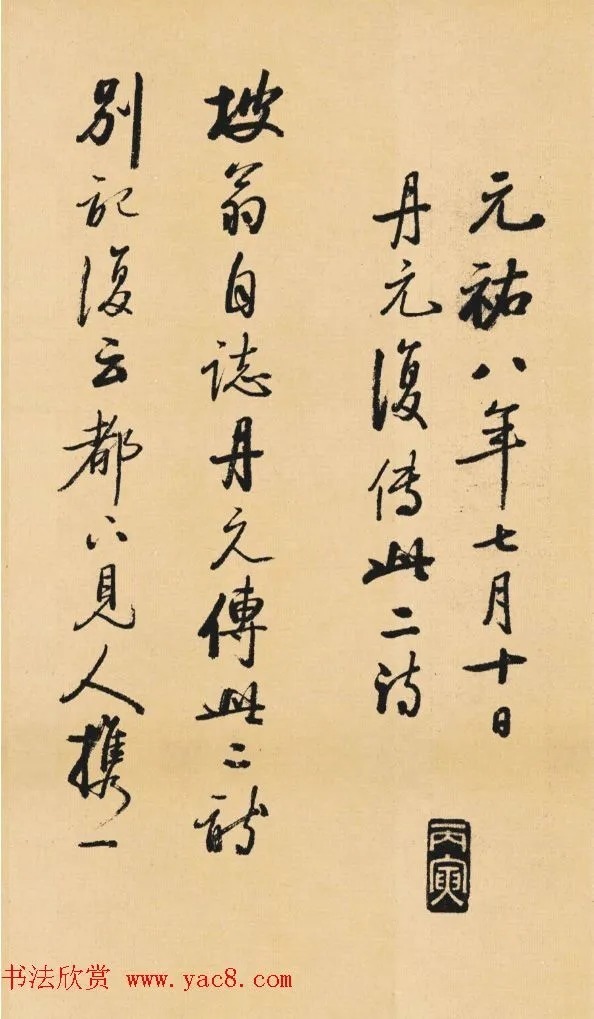 元祐八年七月十日
丹元復傳此二詩
丙寅
坡翁自誌丹元傳此二詩
別記復云都下見人攜一
书法欣赏 www.yac8.com